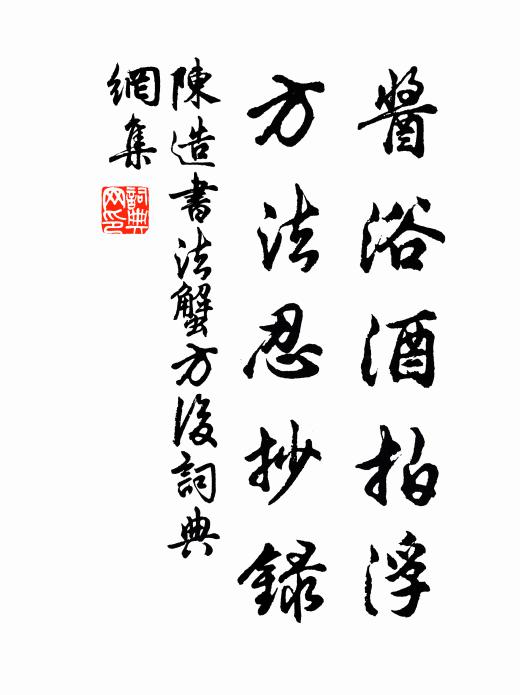 醬浴酒拍浮
方法忍抄錄
陳造書法蟹方後詞典
網集
詞典
网印